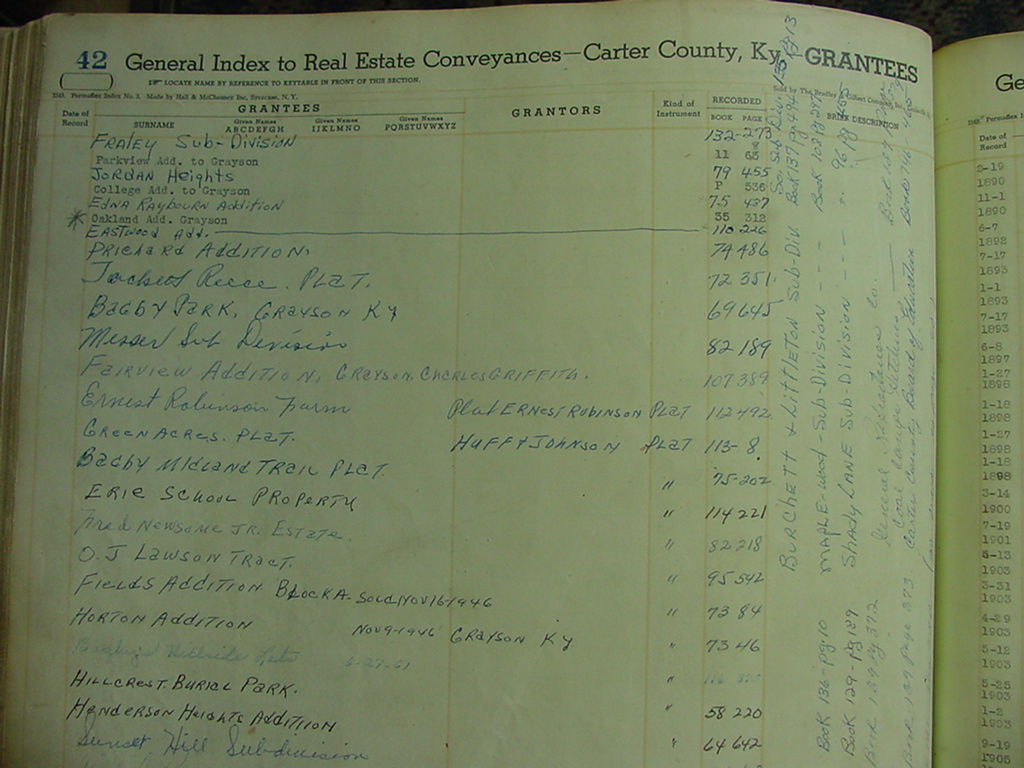 42 General Index to Real Estate Conveyances—Carter County, Ky.—GRANTEES
LOCATE NAME BY REFERENCE TO KEYTABLE IN FRONT OF THIS SECTION.
Made by Hall & McChesney Inc, Syracuse, N. Y. Sold by The Bradley & Gilbert Company
Date of Record GRANTEES GRANTORS Kind of Instrument RECORDED BRIEF DESCRIPTION
SURNAME Given Names ABCDEFGH Given Names IJKLMNO Given Names PQRSTUVWXYZ BOOK PAGE
FRALEY Sub-Division 132-273
Parkview Add. to Grayson 11 63
JORDAN Heights 79 455
College Add. to Grayson P 536
EDNA RAYBOURN Addition 75 437
* Oakland Add. Grayson 35 312
EASTWOOD Add. 110 226
PRICHARD ADDITION 74 486
Reece. PLAT. 72 351
BAGBY PARK, GRAYSON KY 69 645
Messer Sub Division 82 189
FAIRVIEW ADDITION, GRAYSON. CHARLES GRIFFITH. 107 389
Ernest Robinson Farm Plat ERNEST ROBINSON PLAT 112 492
GREEN ACRES. PLAT. HUFF & JOHNSON PLAT 113- 8
BAGBY MIDLAND TRAIL PLAT. 75-202
ERIE SCHOOL PROPERTY " 114 221
Fred NEWSOME JR. ESTATE. " 82 218
O.J LAWSON TRACT. " 95 542
FIELDS ADDITION BLOCK A- SOLD NOV 16-1946 " 73 84
HORTON ADDITION NOV 9-1946 GRAYSON KY " 73 46
Hillside Lots
HILLCREST BURIAL PARK. "
HENDERSON HEIGHTS ADDITION " 58 220
Sunset Hill Subdivision " 64 642
BURCHETT & LITTLETON Sub-Div Book 137 pg
MAPLE-wood-Sub-Division --- Book 136-pg-10
SHADY LANE SUB DIVISION --- 96 pg
Book 129-pg-189
General Co.
Book 139 pg 372
Coal
Carter County Board of Education
Book 139 page 373
Ge
Date of Record
2-19
1890
11-1
1890
6-7
1892
7-17
1893
1-1
1893
7-17
1893
6-8
1897
1-27
1898
1-18
1898
1-27
1898
1-18
1898
3-14
1900
7-19
1901
5-13
1903
3-31
1903
4-29
1903
5-12
1903
5-25
1903
1-2
1903
9-19
1905